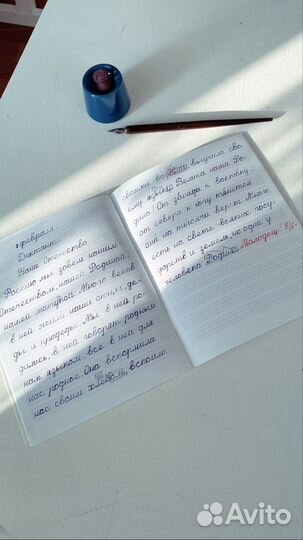 февраля
Диктант.
Наше Отечество.
Россию мы зовем нашим
Отечеством, нашей Родиной,
нашей матушкой. Много веков
в ней жили наши отцы, де-
ды и прадеды. Мы в ней ро-
дились, в ней говорят родным
нам языком, все в ней для
нас родное. Она вскормила
нас своим хлебом, вспоила
своими водами, выучила сво-
ему языку. Велика наша Ро-
дина! От запада к востоку,
от севера к югу тянется
она на тысячи верст. Много
есть на свете всяких госу-
дарств и земель, но одна у
человека Родина. Молодец! 5/5-
Avito